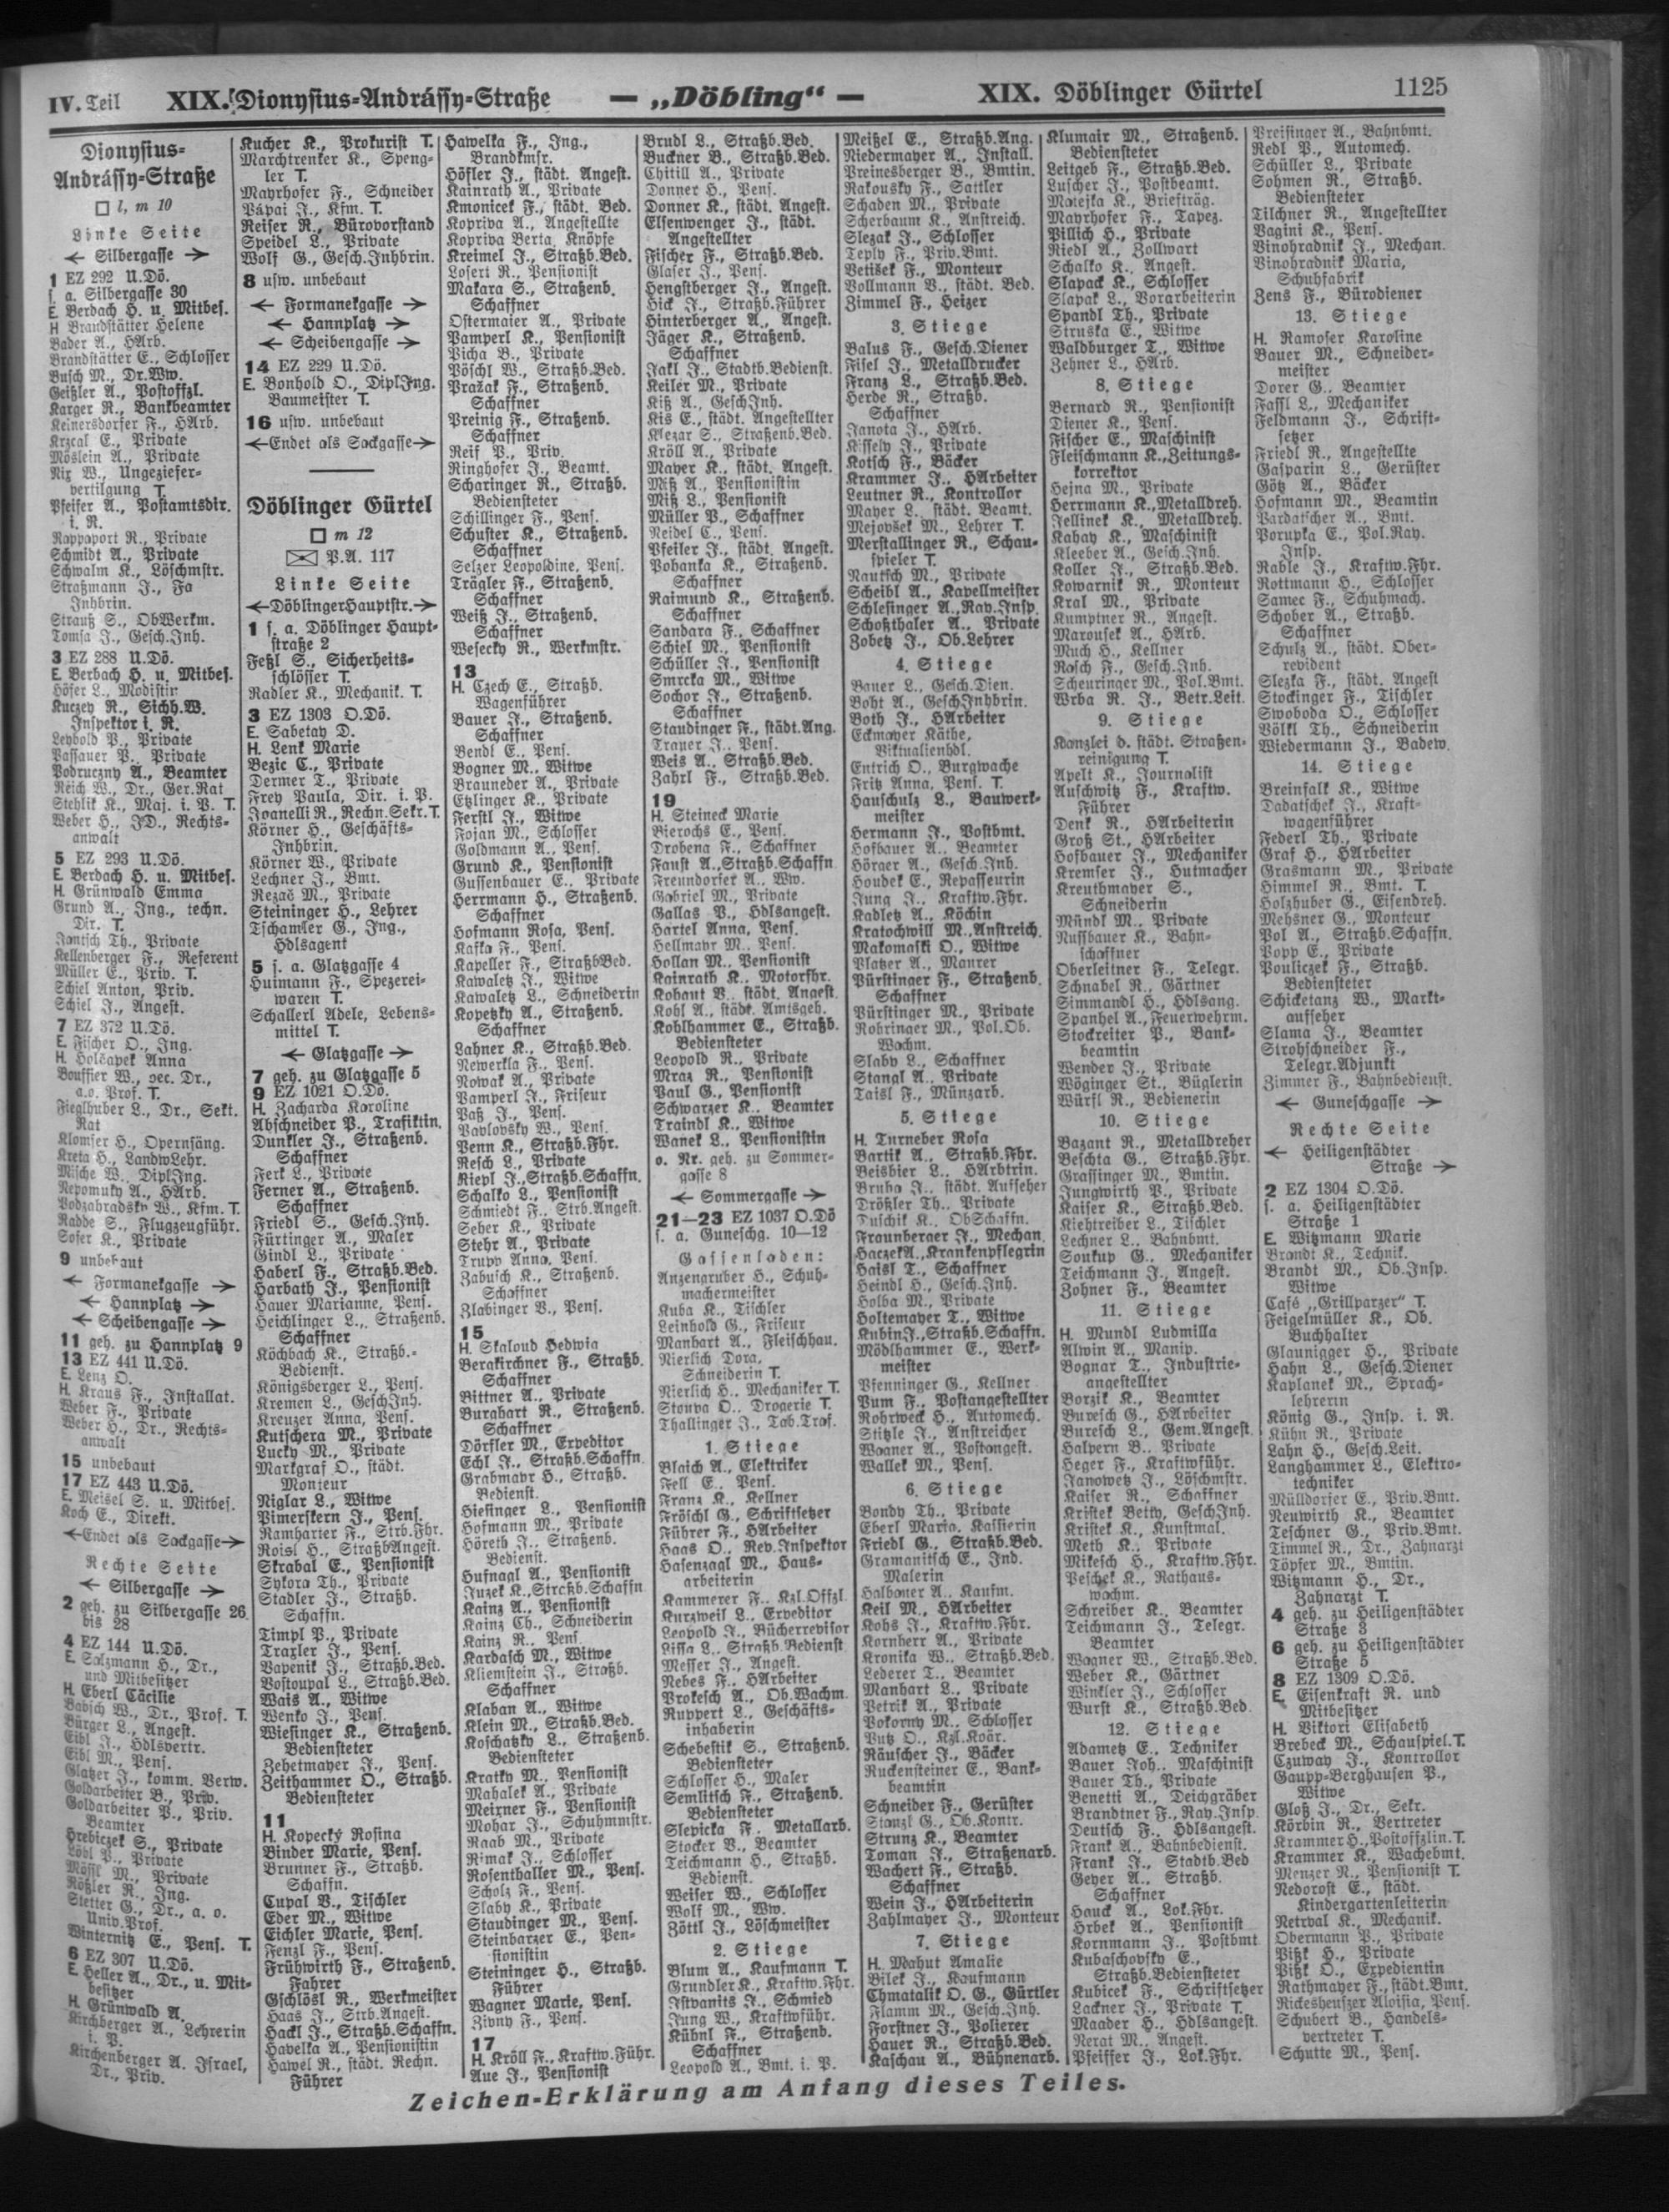 IV. Teil XIX. Dionysius-Andrássy-Straße — „Döbling“ — XIX. Döblinger Gürtel 1125
Dionysius-
Andrássy-Straße
□ l, m 10
Linke Seite
← Silbergasse →
1 EZ 292 U.Dö.
s. a. Silbergasse 30
E. Berbach H. u. Mitbes.
H Brandstätter Helene
Bader A., HArb.
Brandstätter E., Schlosser
Busch M., Dr.Ww.
Geißler A., Postoffzl.
Karger R., Bankbeamter
Keinersdorfer F., HArb.
Krzcal E., Private
Möslein A., Private
Nix W., Ungeziefer-
vertilgung T.
Pfeifer A., Postamtsdir.
i. R.
Rappaport R., Private
Schmidt A., Private
Schwalm K., Löschmstr.
Straßmann J., Fa
Inhbrin.
Strauß S., ObWerkm.
Tomsa J., Gesch.Inh.
3 EZ 288 U.Dö.
E. Berbach H. u. Mitbes.
Höfer L., Modistin
Kuczey R., Sichh.W.
Inspektor i. R.
Leybold P., Private
Passauer P., Private
Podruczny A., Beamter
Reich W., Dr., Ger.Rat
Stehlik K., Maj. i. P. T.
Weber H., JD., Rechts-
anwalt
5 EZ 293 U.Dö.
E. Berbach H. u. Mitbes.
H. Grünwald Emma
Grund A., Ing., techn.
Dir. T.
Jantsch Th., Private
Kellenberger F., Referent
Müller E., Priv. T.
Schiel Anton, Priv.
Schiel J., Angest.
7 EZ 372 U.Dö.
E. Fischer O., Ing.
H. Holšapek Anna
Bouffier W., Dr.,
a.o. Prof. T.
Fieglhuber L., Dr., Sekt.
Rat
Klomser H., Opernsäng.
Kreta H., LandwLehr.
Mische W., DiplIng.
Nepomuky A., HArb.
Podzahradsky W., Kfm. T.
Radde S., Flugzeugführ.
Sofer K., Private
9 unbebaut
← Formanekgasse →
← Hannplatz →
← Scheibengasse →
11 geh. zu Hannplatz 9
13 EZ 441 U.Dö.
E. Lenz O.
H. Kraus F., Installat.
Weber F., Private
Weber H., Dr., Rechts-
anwalt
15 unbebaut
17 EZ 443 U.Dö.
E. Meisel S. u. Mitbes.
Koch E., Direkt.
←Endet als Sackgasse→
Rechte Seite
← Silbergasse →
2 geh. zu Silbergasse 26
bis 28
4 EZ 144 U.Dö.
E. Salzmann H., Dr.,
und Mitbesitzer
H. Eberl Cäcilie
Babsch W., Dr., Prof. T.
Bürger L., Angest.
Eibl J., Hdlsvertr.
Eibl M., Pens.
Glatzer J., komm. Verw.
Goldarbeiter B., Priv.
Goldarbeiter P., Priv.
Beamter
Hrebiczek S., Private
Löbl P., Private
Mößl M., Private
Rößler R., Ing.
Stetter G., Dr., a. o.
Univ.Prof.
Winternitz E., Pens. T.
6 EZ 307 U.Dö.
E. Heller A., Dr., u. Mit-
besitzer
H. Grünwald A.
Kirchberger A., Lehrerin
i. P.
Kirchenberger A. Israel,
Dr., Priv.
Kucher K., Prokurist T.
Marchtrenker K., Speng-
ler T.
Mayrhofer F., Schneider
Pápai J., Kfm. T.
Reiser R., Bürovorstand
Speidel L., Private
Wolf G., Gesch.Inhbrin.
8 usw. unbebaut
← Formanekgasse →
← Hannplatz →
← Scheibengasse →
14 EZ 229 U.Dö.
E. Bonhold O., DiplIng.
Baumeister T.
16 usw. unbebaut
←Endet als Sackgasse→
Döblinger Gürtel
□ m 12
P.A. 117
Linke Seite
←DöblingerHauptstr.→
1 s. a. Döblinger Haupt-
straße 2
Feßl S., Sicherheits-
schlösser T.
Radler K., Mechanik. T.
3 EZ 1303 O.Dö.
E. Sabetay D.
H. Lenk Marie
Bezic C., Private
Dermer T., Private
Frey Paula, Dir. i. P.
Joanelli R., Rechn.Sekr. T.
Körner H., Geschäfts-
Inhbrin.
Körner W., Private
Lechner J., Bmt.
Rezač M., Private
Steininger H., Lehrer
Tschamler G., Ing.,
Hdlsagent
5 s. a. Glatzgasse 4
Huimann F., Spezerei-
waren T.
Schallerl Adele, Lebens-
mittel T.
← Glatzgasse →
7 geh. zu Glatzgasse 5
9 EZ 1021 O.Dö.
H. Zacharda Karoline
Abschneider P., Trafiktin.
Dunkler J., Straßenb.
Schaffner
Ferk L., Private
Ferner A., Straßenb.
Schaffner
Friedl S., Gesch.Inh.
Fürtinger A., Maler
Gindl L., Private
Haberl F., Straßb.Bed.
Harbath J., Pensionist
Hauer Marianne, Pens.
Heichlinger L., Straßenb.
Schaffner
Köchbach K., Straßb.-
Bedienst.
Königsberger L., Pens.
Kremen L., GeschInh.
Kreuzer Anna, Pens.
Kutschera M., Private
Lucky M., Private
Markgraf O., städt.
Monteur
Niglar L., Witwe
Pimerskern J., Pens.
Ramharter F., Strb.Fhr.
Roisl H., StraßbAngest.
Skrabal E., Pensionist
Sykora Th., Private
Stadler J., Straßb.
Schaffn.
Timpl P., Private
Traxler J., Pens.
Vapenik J., Straßb.Bed.
Vostoupal L., Straßb.Bed.
Wais A., Witwe
Wenko J., Pens.
Wiesinger K., Straßenb.
Bediensteter
Zehetmayer J., Pens.
Zeithammer O., Straßb.
Bediensteter
11
H. Kopecký Rosina
Binder Marie, Pens.
Brunner F., Straßb.
Schaffn.
Cupal B., Tischler
Eder M., Witwe
Eichler Marie, Pens.
Fenzl F., Pens.
Frühwirth F., Straßenb.
Fahrer
Gschlösl R., Werkmeister
Haas J., Strb.Angest.
Hackl J., Straßb.Schaffn.
Havelka A., Pensionistin
Hawel R., städt. Rechn.
Führer
Hawelka F., Ing.,
Brandkmsr.
Höfler J., städt. Angest.
Kainrath A., Private
Kmonicek F., städt. Bed.
Kopriva A., Angestellte
Kopriva Berta, Knöpfe
Kreimel J., Straßb.Bed.
Losert R., Pensionist
Makara S., Straßenb.
Schaffner
Ostermaier A., Private
Pamperl K., Pensionist
Picha B., Private
Pöschl W., Straßb.Bed.
Pražak F., Straßenb.
Schaffner
Preinig F., Straßenb.
Schaffner
Reif P., Priv.
Ringhofer J., Beamt.
Scharinger R., Straßb.
Bediensteter
Schillinger F., Pens.
Schuster K., Straßenb.
Schaffner
Selzer Leopoldine, Pens.
Trägler F., Straßenb.
Schaffner
Weiß J., Straßenb.
Schaffner
Wesecky R., Werkmstr.
13
H. Czech E., Straßb.
Wagenführer
Bauer J., Straßenb.
Schaffner
Bendl E., Pens.
Bogner M., Witwe
Brauneder A., Private
Etzlinger K., Private
Ferstl J., Witwe
Fojan M., Schlosser
Goldmann A., Pens.
Grund K., Pensionist
Gussenbauer E., Private
Herrmann H., Straßenb.
Schaffner
Hofmann Rosa, Pens.
Kafka F., Pens.
Kapeller F., StraßbBed.
Kawaletz J., Witwe
Kawaletz L., Schneiderin
Kopetzky A., Straßenb.
Schaffner
Lahner K., Straßb.Bed.
Newerkla F., Pens.
Nowak A., Private
Pamperl J., Friseur
Paß J., Pens.
Pavlovsky W., Pens.
Penn K., Straßb.Fhr.
Resch L., Private
Riepl J., Straßb.Schaffn.
Schalko L., Pensionist
Schmiedt F., Strb.Angest.
Seber K., Private
Stehr A., Private
Trupp Anna, Pens.
Zabusch K., Straßenb.
Schaffner
Zlabinger V., Pens.
15
H. Skaloud Hedwig
Bergkirchner F., Straßb.
Schaffner
Bittner A., Private
Burghart R., Straßenb.
Schaffner
Dörfler M., Expeditor
Echl J., Straßb.Schaffn.
Grabmayr H., Straßb.
Bedienst.
Hiesinger L., Pensionist
Hofmann M., Private
Höreth J., Straßenb.
Bedienst.
Hufnagl A., Pensionist
Juzek K., Straßb.Schaffn
Kainz A., Pensionist
Kainz Ch., Schneiderin
Kainz R., Pens.
Kardasch M., Witwe
Kliemstein J., Straßb.
Schaffner
Klaban A., Witwe
Klein M., Straßb.Bed.
Koschatzky L., Straßenb.
Bediensteter
Kratky M., Pensionist
Mahalek A., Private
Meixner F., Pensionist
Mohar J., Schuhmmstr.
Raab M., Private
Rimak J., Schlosser
Rosenthaller M., Pens.
Scholz F., Pens.
Slaby K., Private
Staudinger M., Pens.
Steinbarzer E., Pen-
sionistin
Steininger H., Straßb.
Führer
Wagner Marie, Pens.
Zivny F., Pens.
17
H. Kröll F., Kraftw.Führ.
Aue J., Pensionist
Brudl L., Straßb.Bed.
Buckner B., Straßb.Bed.
Chitill A., Private
Donner H., Pens.
Donner K., städt. Angest.
Elsenwenger J., städt.
Angestellter
Fischer F., Straßb.Bed.
Glaser J., Pens.
Hengstberger J., Angest.
Hick J., Straßb.Führer
Hinterberger A., Angest.
Jäger K., Straßenb.
Schaffner
Jakl J., Stadtb.Bedienst.
Keiler M., Private
Kiß A., GeschJnh.
Kis E., städt. Angestellter
Klezar S., Straßenb.Bed.
Kröll A., Private
Mayer K., städt. Angest.
Miß A., Pensionistin
Miß L., Pensionist
Müller P., Schaffner
Neidel C., Pens.
Pfeiler J., städt. Angest.
Pobanka K., Straßenb.
Schaffner
Raimund K., Straßenb.
Schaffner
Sandara F., Schaffner
Schiel M., Pensionist
Schüller J., Pensionist
Smrcka M., Witwe
Sochor J., Straßenb.
Schaffner
Staudinger F., städt.Ang.
Trauer J., Pens.
Weis A., Straßb.Bed.
Zahrl F., Straßb.Bed.
19
H. Steineck Marie
Bierochs E., Pens.
Drobena F., Schaffner
Faust A., Straßb.Schaffn
Freundorfer A., Ww.
Gabriel M., Private
Gallas P., Hdlsangest.
Hartel Anna, Pens.
Hellmayr M., Pens.
Hollan M., Pensionist
Kainrath K., Motorfhr.
Kohaut V., städt. Angest.
Kohl A., städt. Amtsgeh.
Koblhammer E., Straßb.
Bediensteter
Leopold R., Private
Mraz R., Pensionist
Paul G., Pensionist
Schwarzer K., Beamter
Traindl K., Witwe
Wanek L., Pensionistin
o. Nr. geh. zu Sommer-
gasse 8
← Sommergasse →
21—23 EZ 1037 O.Dö
s. a. Guneschg. 10—12
Gassenladen:
Anzengruber H., Schuh-
machermeister
Kuba K., Tischler
Leinhold G., Friseur
Manhart A., Fleischhau.
Nierlich Dora,
Schneiderin T.
Nierlich H., Mechaniker T.
Stouva O., Drogerie T.
Thallinger J., Tab.Traf.
1. Stiege
Blaich A., Elektriker
Fell E., Pens.
Franz K., Kellner
Fröschl G., Schriftsetzer
Führer F., HArbeiter
Haas O., Rev.Inspektor
Hasenzagl M., Haus-
arbeiterin
Kammerer F., Kzl.Offzl.
Kurzweil L., Expeditor
Leopold J., Bücherrevisor
Lissa L., Straßb.Bedienst
Messer J., Angest.
Nebes F., HArbeiter
Prokesch A., Ob.Wachm.
Ruppert L., Geschäfts-
inhaberin
Schebestik S., Straßenb.
Bediensteter
Schlosser H., Maler
Semlitsch F., Straßenb.
Bediensteter
Slepicka F., Metallarb.
Stocker V., Beamter
Teichmann H., Straßb.
Bedienst.
Weiser W., Schlosser
Wolf M., Ww.
Zöttl J., Löschmeister
2. Stiege
Blum A., Kaufmann T.
Grundler K., Kraftw.Fhr.
Istvanits J., Schmied
Jung W., Kraftwführ.
Kühnl F., Straßenb.
Schaffner
Leopold A., Bmt. i. P.
Meißel E., Straßb.Ang.
Niedermayer A., Install.
Preinesberger B., Bmtin.
Rakousky F., Sattler
Schaden M., Private
Scherbaum K., Anstreich.
Slezak J., Schlosser
Teply F., Priv.Bmt.
Vetisek F., Monteur
Vollmann P., städt. Bed.
Zimmel F., Heizer
3. Stiege
Balus F., Gesch.Diener
Fisel J., Metalldrucker
Franz L., Straßb.Bed.
Herde R., Straßb.
Schaffner
Janota J., HArb.
Kissely J., Private
Kotsch F., Bäcker
Krammer J., HArbeiter
Leutner R., Kontrollor
Mayer L., städt. Beamt.
Mejovsek M., Lehrer T.
Merstallinger R., Schau-
spieler T.
Nautsch M., Private
Scheibl A., Kapellmeister
Schlesinger A., Ray.Insp.
Schoßthaler A., Private
Zobetz J., Ob.Lehrer
4. Stiege
Bauer L., Gesch.Dien.
Boht A., GeschInhbrin.
Both J., HArbeiter
Eckmayer Käthe,
Viktualienhdl.
Entrich O., Burgwache
Fritz Anna, Pens. T.
Hauschulz L., Bauwerk-
meister
Hermann J., Postbmt.
Hofbauer A., Beamter
Hörger A., Gesch.Inh.
Houdek E., Repasseurin
Jung J., Kraftw.Fhr.
Kadletz A., Köchin
Kratochwill M., Anstreich.
Makomaski O., Witwe
Platzer A., Maurer
Pürstinger F., Straßenb.
Schaffner
Pürstinger M., Private
Rohringer M., Pol.Ob.
Wachm.
Slaby L., Schaffner
Stangl A., Private
Taisl F., Münzarb.
5. Stiege
H. Turneber Rosa
Bartik A., Straßb.Fhr.
Beisbier L., HArbtrin.
Bruha J., städt. Aufseher
Drößler Th., Private
Duschik K., ObSchaffn.
Fraunberger J., Mechan.
Haczek A., Krankenpflegrin
Haisl T., Schaffner
Heindl H., Gesch.Inh.
Holba M., Private
Holtemayer T., Witwe
Kubin J., Straßb.Schaffn.
Mödlhammer E., Werk-
meister
Pfenninger G., Kellner
Pum F., Postangestellter
Rohrweck H., Automech.
Stitzle J., Anstreicher
Wagner A., Postangest.
Wallek M., Pens.
6. Stiege
Bondy Th., Private
Eberl Maria, Kassierin
Friedl G., Straßb.Bed.
Gramanitsch E., Ind.
Malerin
Halboner A., Kaufm.
Keil M., HArbeiter
Kobs J., Kraftw.Fhr.
Kornherr A., Private
Kronika W., Straßb.Bed.
Lederer T., Beamter
Manhart L., Private
Petrik A., Private
Pokorny M., Schlosser
Putz O., Kzl.Koär.
Räuscher J., Bäcker
Ruckensteiner E., Bank-
beamtin
Schneider F., Gerüster
Stanzl G., Ob.Kontr.
Strunz K., Beamter
Toman J., Straßenarb.
Wachert F., Straßb.
Schaffner
Wein J., HArbeiterin
Zahlmayer J., Monteur
7. Stiege
H. Mahut Amalie
Bilek J., Kaufmann
Chmatalik O. G., Gürtler
Flamm M., Gesch.Inh.
Forstner J., Polierer
Hauer R., Straßb.Bed.
Kaschau A., Bühnenarb.
Klumair M., Straßenb.
Bediensteter
Leitgeb F., Straßb.Bed.
Luscher J., Postbeamt.
Matejka K., Briefträg.
Mayrhofer F., Tapez.
Pillich H., Private
Riedl A., Zollwart
Schalko K., Angest.
Slapack K., Schlosser
Slapak L., Vorarbeiterin
Spandl Th., Private
Struska E., Witwe
Waldburger T., Witwe
Zehner L., HArb.
8. Stiege
Bernard R., Pensionist
Diener K., Pens.
Fischer E., Maschinist
Fleischmann K., Zeitungs-
korrektor
Hejna M., Private
Herrmann K., Metalldreh.
Jellinek K., Metalldreh.
Kahay K., Maschinist
Kleeber A., Gesch.Inh.
Koller J., Straßb.Bed.
Kowarnik R., Monteur
Kral M., Private
Kumptner R., Angest.
Marousek A., HArb.
Much H., Kellner
Rosch F., Gesch.Inh.
Scheuringer M., Pol.Bmt.
Wrba R. J., Betr.Leit.
9. Stiege
Kanzlei d. städt. Straßen-
reinigung T.
Apelt K., Journalist
Auschwitz F., Kraftw.
Führer
Denk R., HArbeiterin
Groß St., HArbeiter
Hofbauer J., Mechaniker
Kremser J., Hutmacher
Kreuthmayer S.,
Schneiderin
Mündl M., Private
Nussbauer K., Bahn-
schaffner
Oberleitner F., Telegr.
Schnabel R., Gärtner
Simmandl H., Hdlsang.
Spanhel A., Feuerwehrm.
Stockreiter P., Bank-
beamtin
Wender J., Private
Wöginger St., Büglerin
Würfl R., Bedienerin
10. Stiege
Bazant R., Metalldreher
Beschta G., Straßb.Fhr.
Grassinger M., Bmtin.
Jungwirth P., Private
Kaiser K., Straßb.Bed.
Kiehtreiber L., Tischler
Lechner L., Bahnbmt.
Soukup G., Mechaniker
Teichmann J., Angest.
Zohner F., Beamter
11. Stiege
H. Mundl Ludmilla
Alwin A., Manip.
Bognar T., Industrie-
angestellter
Borzik F., Beamter
Buresch G., HArbeiter
Buresch L., Gem.Angest.
Halpern B., Private
Heger F., Kraftwführ.
Janowetz J., Löschmstr.
Kaiser R., Schaffner
Kristek Betty, GeschInh.
Kristek K., Kunstmal.
Meth K., Private
Mikesch H., Kraftw.Fhr.
Peschek K., Rathaus-
wachm.
Schreiber K., Beamter
Teichmann J., Telegr.
Beamter
Wagner W., Straßb.Bed.
Weber K., Gärtner
Winkler J., Schlosser
Wurst K., Straßb.Bed.
12. Stiege
Adametz E., Techniker
Bauer Joh., Maschinist
Bauer Th., Private
Benetti A., Deichgräber
Brandtner F., Ray.Insp.
Deutsch F., Hdlsangest.
Frank A., Bahnbedienst.
Frank J., Stadtb.Bed
Geyer A., Straßb.
Schaffner
Hauck A., Lok.Fhr.
Hrbek A., Pensionist
Kornmann J., Postbmt
Kubaschovsky E.,
Straßb.Bediensteter
Kubicek F., Schriftsetzer
Lackner J., Private T.
Maader H., Hdlsangest.
Nerat M., Angest.
Pfeiffer J., Lok.Fhr.
Preisinger A., Bahnbmt.
Redl P., Automech.
Schüller L., Private
Sohmen R., Straßb.
Bediensteter
Tilchner R., Angestellter
Vagini K., Pens.
Vinohradnik J., Mechan.
Vinohradnik Maria,
Schuhfabrik
Zens F., Bürodiener
13. Stiege
H. Ramoser Karoline
Bauer M., Schneider-
meister
Dorer G., Beamter
Fassl L., Mechaniker
Feldmann J., Schrift-
setzer
Friedl R., Angestellte
Gasparin L., Gerüster
Götz A., Bäcker
Hofmann M., Beamtin
Pardatscher A., Bmt.
Porupka E., Pol.Ray.
Insp.
Rable J., Kraftw.Fhr.
Rottmann H., Schlosser
Samec F., Schuhmach.
Schober A., Straßb.
Schaffner
Schulz A., städt. Ober-
revident
Slezka F., städt. Angest
Stockinger F., Tischler
Swoboda O., Schlosser
Völkl Th., Schneiderin
Wiedermann J., Badew.
14. Stiege
Breinfalk K., Witwe
Dadatschek J., Kraft-
wagenführer
Federl Th., Private
Graf H., HArbeiter
Grasmann M., Private
Himmel R., Bmt. T.
Holzhuber G., Eisendreh.
Mehsner G., Monteur
Pol A., Straßb.Schaffn.
Popp E., Private
Pouliczek F., Straßb.
Bediensteter
Schicketanz W., Markt-
aufseher
Slama J., Beamter
Strohschneider F.,
Telegr.Adjunkt
Zimmer F., Bahnbedienst.
← Guneschgasse →
Rechte Seite
← Heiligenstädter
Straße →
2 EZ 1304 O.Dö.
s. a. Heiligenstädter
Straße 1
E. Witzmann Marie
Brandt K., Technik.
Brandt M., Ob.Insp.
Witwe
Café „Grillparzer“ T.
Feigelmüller K., Ob.
Buchhalter
Glaunigger H., Private
Hahn L., Gesch.Diener
Kaplanek M., Sprach-
lehrerin
König G., Insp. i. R.
Kühn R., Private
Lahn H., Gesch.Leit.
Langhammer L., Elektro-
techniker
Mülldorfer E., Priv.Bmt.
Neuwirth K., Beamter
Teschner G., Priv.Bmt.
Timmel R., Dr., Zahnarzt
Töpfer M., Bmtin.
Witzmann H., Dr.,
Zahnarzt T.
4 geh. zu Heiligenstädter
Straße 3
6 geh. zu Heiligenstädter
Straße 5
8 EZ 1309 O.Dö.
E. Eisenkraft R. und
Mitbesitzer
H. Viktori Elisabeth
Brebeck M., Schauspiel. T.
Czuway J., Kontrollor
Gaupp-Berghausen P.,
Witwe
Gloß J., Dr., Sekr.
Körbin R., Vertreter
Krammer H., Postoffzlin. T.
Krammer K., Wachebmt.
Menzer R., Pensionist T.
Nedorost E., städt.
Kindergartenleiterin
Netrval K., Mechanik.
Obermann P., Private
Pitzk H., Private
Pitzk O., Expedientin
Rathmayer F., städt.Bmt.
Rickesheuszer Aloisia, Pens.
Schubert B., Handels-
vertreter T.
Schutte M., Pens.
Zeichen-Erklärung am Anfang dieses Teiles.